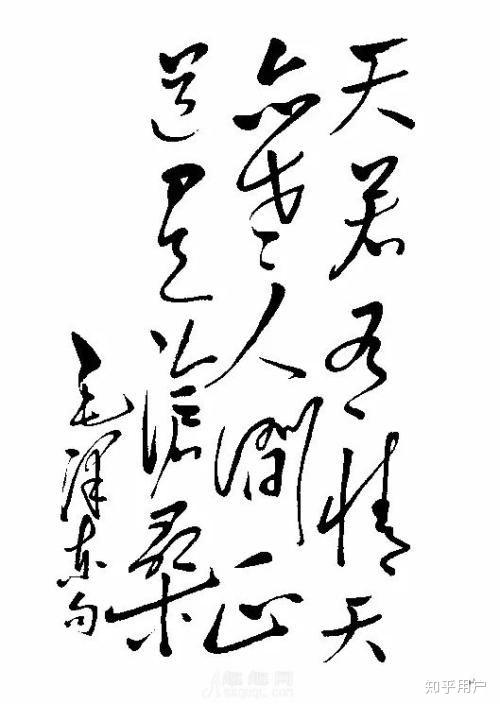 天若有情天
亦老人间正
道是沧桑
毛泽东句
知乎用户